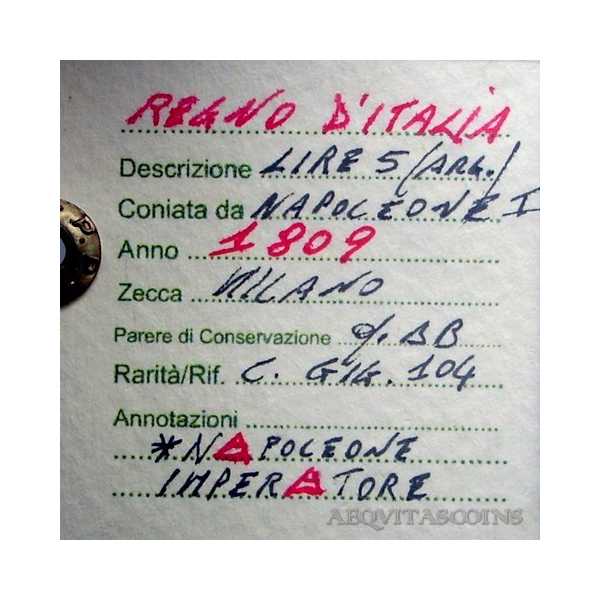 REGNO D'ITALIA
Descrizione LIRE 5 (ARG.)
Coniata da NAPOLEONE I
Anno 1809
Zecca MILANO
Parere di Conservazione q. BB
Rarità/Rif. C. GIG. 104
Annotazioni
*NAPOLEONE
IMPERATORE
AEQVITASCOINS